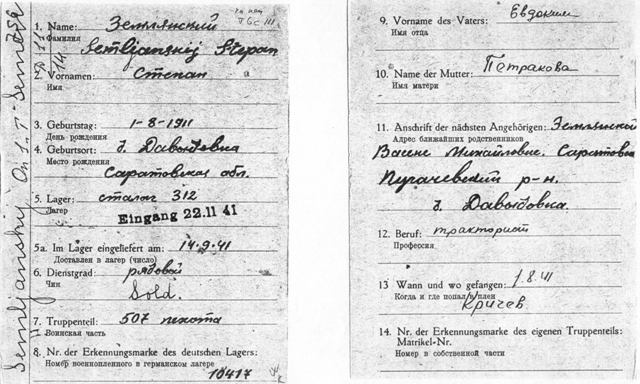 1. Name: Землянский
Фамилия
Semljanskij Stepan
2. Vornamen: Степан
Имя
3. Geburtstag: 1-8-1911
День рождения
4. Geburtsort: д. Давыдовка
Место рождения
Саратовская обл.
5. Lager: сталаг 312
Лагер
Eingang 22.11 41
5a. Im Lager eingeliefert am: 14.9.41
Доставлен в лагер (число)
6. Dienstgrad: рядовой
Чин
Sold.
7. Truppenteil: 507 пехота
Воинская часть
8. Nr. der Erkennungsmarke des deutschen Lagers:
Номер военнопленного в германском лагере
10417
Semljanskij
9. Vorname des Vaters: Евдоким
Имя отца
10. Name der Mutter: Петракова
Имя матери
11. Anschrift der nächsten Angehörigen: Землянской
Адрес ближайших родственников
Михайловне. Саратовск
Пугачевский р-н.
д. Давыдовка
12. Beruf: тракторист
Профессия
13 Wann und wo gefangen: 1.8.41
Когда и где попал в плен
Кричев
14. Nr. der Erkennungsmarke des eigenen Truppenteils:
Matrikel-Nr.
Номер в собственной части